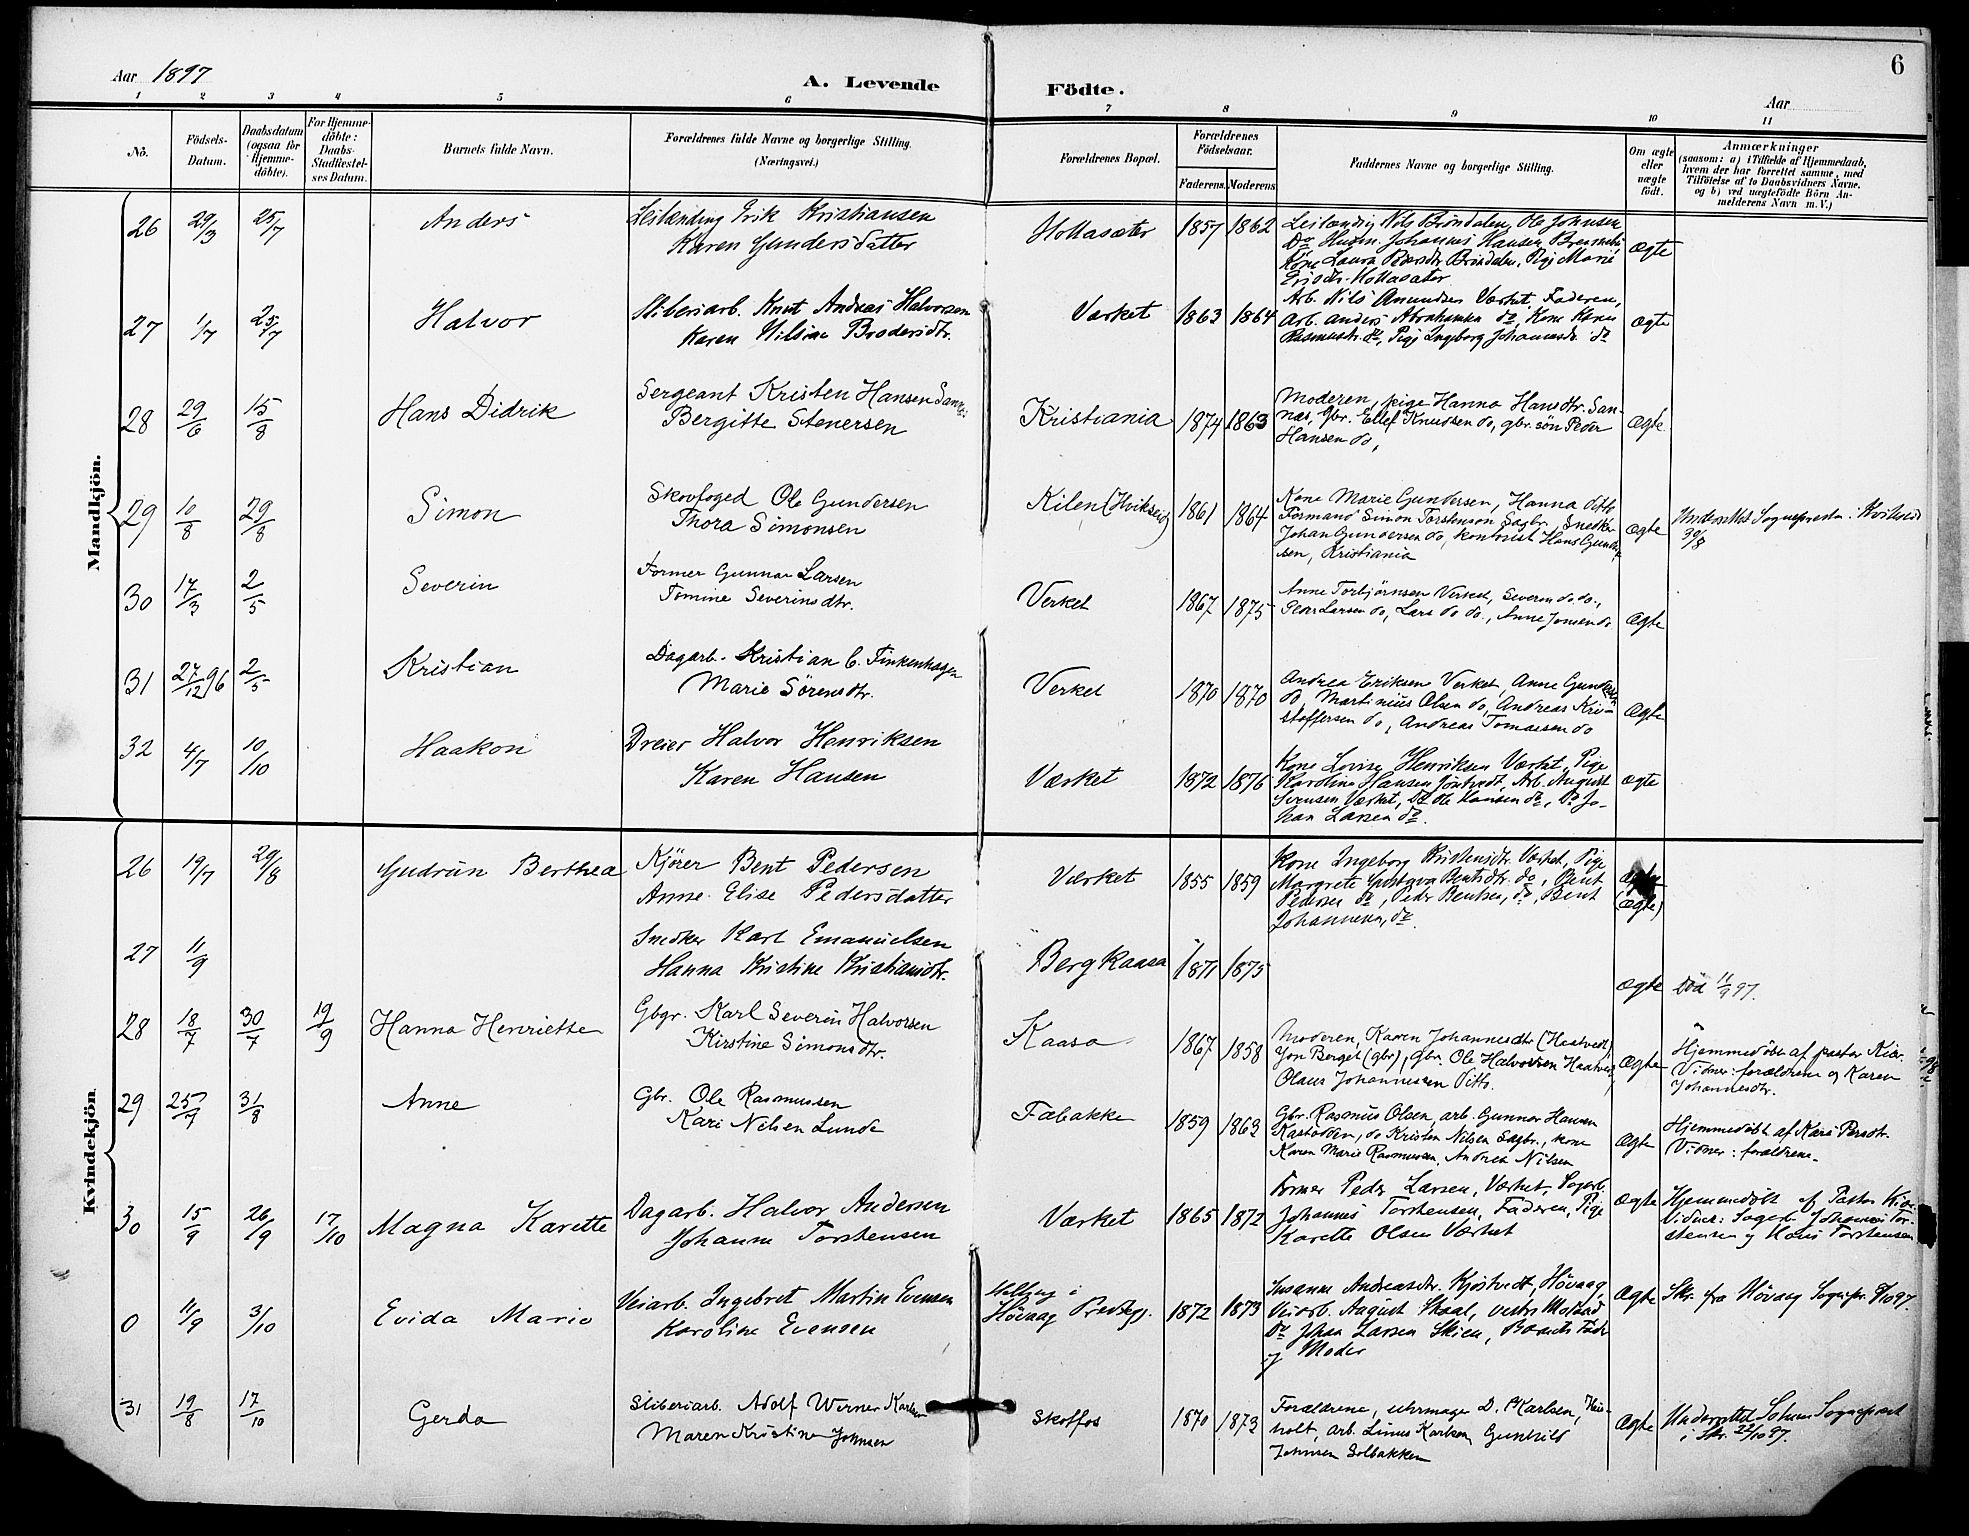 Aar 1897
A. Levende Födte.
6
Aar
1 2 3 4 5 6 7 8 9 10 11
No. Födsels-Datum. Daabsdatum (ogsaa for Hjemme-döbte). For Hjemme-döbte: Daabs-Stadfæstel-ses Datum. Barnets fulde Navn. Forældrenes fulde Navne og borgerlige Stilling. (Næringsvei.) Forældrenes Bopæl. Forældrenes Födselsaar. Faderens. Moderens. Faddernes Navne og borgerlige Stilling. Om ægte eller uægte födt. Anmærkninger (saasom: a) i Tilfælde af Hjemmedaab, hvem der har forrettet samme, med Tilföielse af to Daabsvidners Navne, og b) ved uægtefödte Börn An-melderens Navn m. V.)
Mandkjön.
26 29/3 25/7 Anders Leilænding Erik Kristiansen Hollasæter 1857 1862 Leilændig Nils Bröndalen, Ole Johnsen
Karen Gundersdatter Do Husm. Johannes Hansen
Kone Laura Bröndalen, Pige Marie ægte
Hollasæter
27 1/7 25/7 Halvor Sliberiarb. Knut Andreas Halvorsen Værket 1863 1864 Arb. Nils Amundsen Værket, Faderen,
Karen Nilsine Brodersdtr. Arb. Anders Abrahamsen do, Kone Karen ægte
Rasmusdtr. do, Pige Ingeborg Johannesdtr. do
28 29/6 15/8 Hans Didrik Sergeant Kristen Hansen Kristiania 1874 1863 Moderen, pige Hanna Hansdtr. San-
Bergitte Stenersen næs, gbr. Ellef Knudsen do, gbr. sön Peder Ægte
Hansen do,
29 10/8 29/8 Simon Skovfoged Ole Gundersen Kilen (Hvikseid) 1861 1864 Kone Marie Gundersen, Hanna ditto
Thora Simonsen Formand Simon Torstenson Sagbr., Snedker Ægte Underrettet Sognepresten i Kviteseid
Johan Gundersen do, kontorist Hans Gunder- 30/8
sen, Kristiania
30 17/3 2/5 Severin Former Gunnar Larsen Verket 1867 1875 Anne Torbjörnsen Verket, Severin do do.,
Tomine Severinsdtr. Peder Larsen do, Lars do do., Anne Jonsen do Ægte
31 27/12 96 2/5 Kristian Dagarb. Kristian C. Finkenhagen Verket 1870 1870 Andrea Eriksen Verket, Anne Gundersen
Marie Sörensdtr. do, Martinius Olsen do, Andreas Kri-
stoffersen do, Andreas Tomassen do Ægte
32 4/7 10/10 Haakon Dreier Halvor Henriksen Værket 1872 1876 Kone Lovise Henriksen Værket, Pige
Karen Hansen Karoline Hansen, Arb. August ægte
Svensen Værket, Do Ole Hansen do, Do Jo-
han Larsen do.
Kvindekjön
26 19/7 29/8 Gudrun Berthea Kjörer Bent Pedersen Værket 1855 1859 Kone Ingeborg Kristensdtr. Værket, Pige
Anne Elise Pedersdatter Margrete Bentsdtr. do, Bent ægte
Pedersen do, Peder Bentsen, do, Bent (ægte)
Johannesen, do.
27 11/9 Snedker Karl Emanuelsen Bergkaasa 1871 1875
Hanna Kristine Kristiansdtr. ægte Död 11/9 97.
28 18/7 30/7 19/9 Hanna Henriette Gbgr. Karl Severin Halvorsen Kaasa 1867 1858 Moderen, Karen Johannesdtr (Haatvedt)
Kirstine Simonsdtr. Jon Berget (gbr), gbr. Ole Halvorsen Haatvet, Ægte Hjemmedöbt af pastor Kiær.
Olaus Johannessen Ditto. Vidner: forældrene og Karen
Johannesdtr.
29 25/7 31/8 Anne Gbr. Ole Rasmussen Fæbakke 1859 1863 Gbr. Rasmus Olsen, arb. Gunnar Hansen
Kari Nilsen Lunde Kastodden, do Kristen Nilsen Sagbr., kone Ægte Hjemmedöbt af Kari Persdtr.
Karen Marie Rasmussen, Andrea Nilsen (Vidner: forældrene.
30 15/9 26/9 17/10 Magna Karette Dagarb. Halvor Andersen Værket 1865 1872 Former Peder Larsen, Værket, Sagarb.
Johanne Torstensen Johannes Torstensen, Faderen, Pige Ægte Hjemmedöbt af Pastor Kiær
Karette Olsen Værket Vidner: Sagarb. Johannes Tor-
stensen og Hans Torstensen
0 11/9 3/10 Evida Marie Veiarb. Ingebret Martin Evensen Hövaag Præstegj. 1872 1873 Susanne Andreasdtr. Kjöstvedt, Höivaag,
Karoline Evensen Veiarb. August Skaal, Ægte Skr. fra Hövaag Sognepr. 97.
Do Johan Larsen Skien, Barnets Fader
og Moder
31 19/8 17/10 Gerda Sliberiarb. Adolf Werner Karlsen Skotfos 1870 1873 Forældrene, uhrmager D. Karlsen,
Maren Kristine Johnsen holt, arb. Linus Karlsen, Gunhild Ægte Underrettet Solum Sognepræst
Johnsen Solbakken i Skr. 22/10 97.